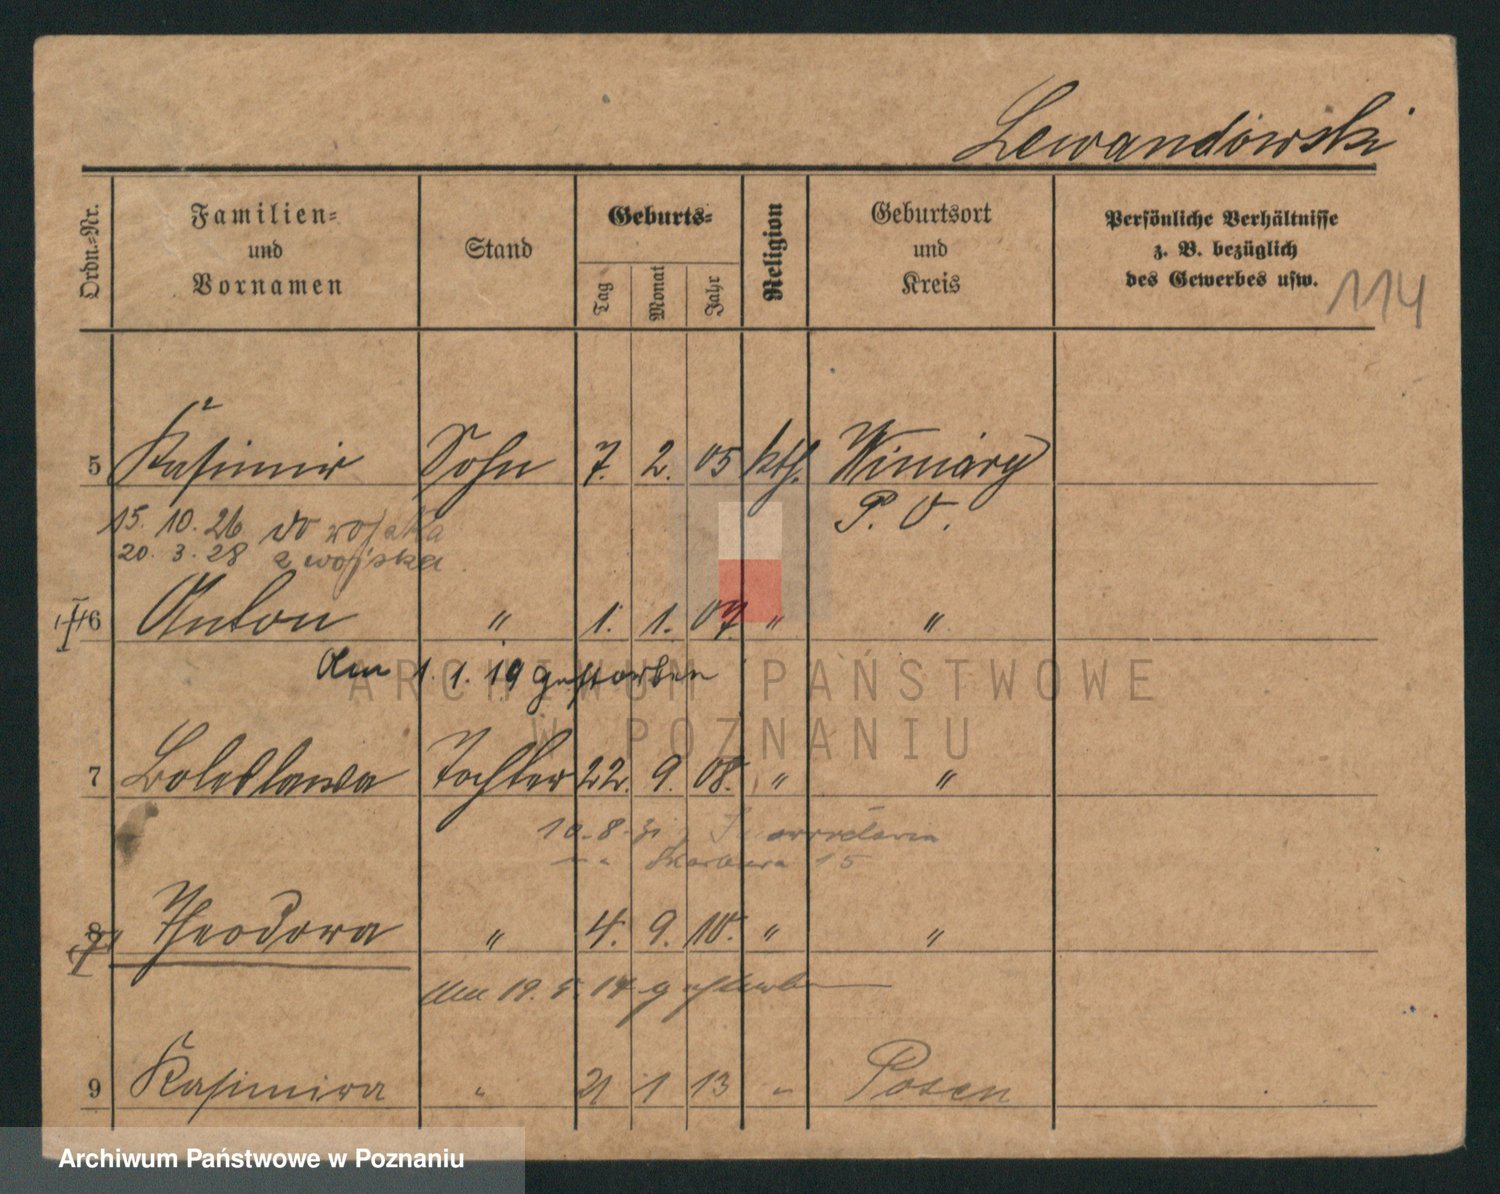 Lewandowski
Ordn.=Nr.
Familien=
und
Vornamen
Stand
Geburts=
Tag
Monat
Jahr
Religion
Geburtsort
und
Kreis
Persönliche Verhältnisse
z. B. bezüglich
des Gewerbes usw.
114
5 Kasimir Sohn 7. 2. 05 kth. Winiary
P. O.
15. 10. 26 do wojska
20. 3. 28 z wojska
6 Anton " 1. 1. 07. " "
Am 1. 1. 19 gestorben
7 Boleslawa Tochter 22. 9. 08. " "
10.-8.-31
Skarbowa 15
8 Theodora " 4. 9. 10. " "
Am 19. 5. 14 gestorben
9 Kasimira " 21 1 13 " Posen
ARCHIWUM PAŃSTWOWE
W POZNANIU
Archiwum Państwowe w Poznaniu